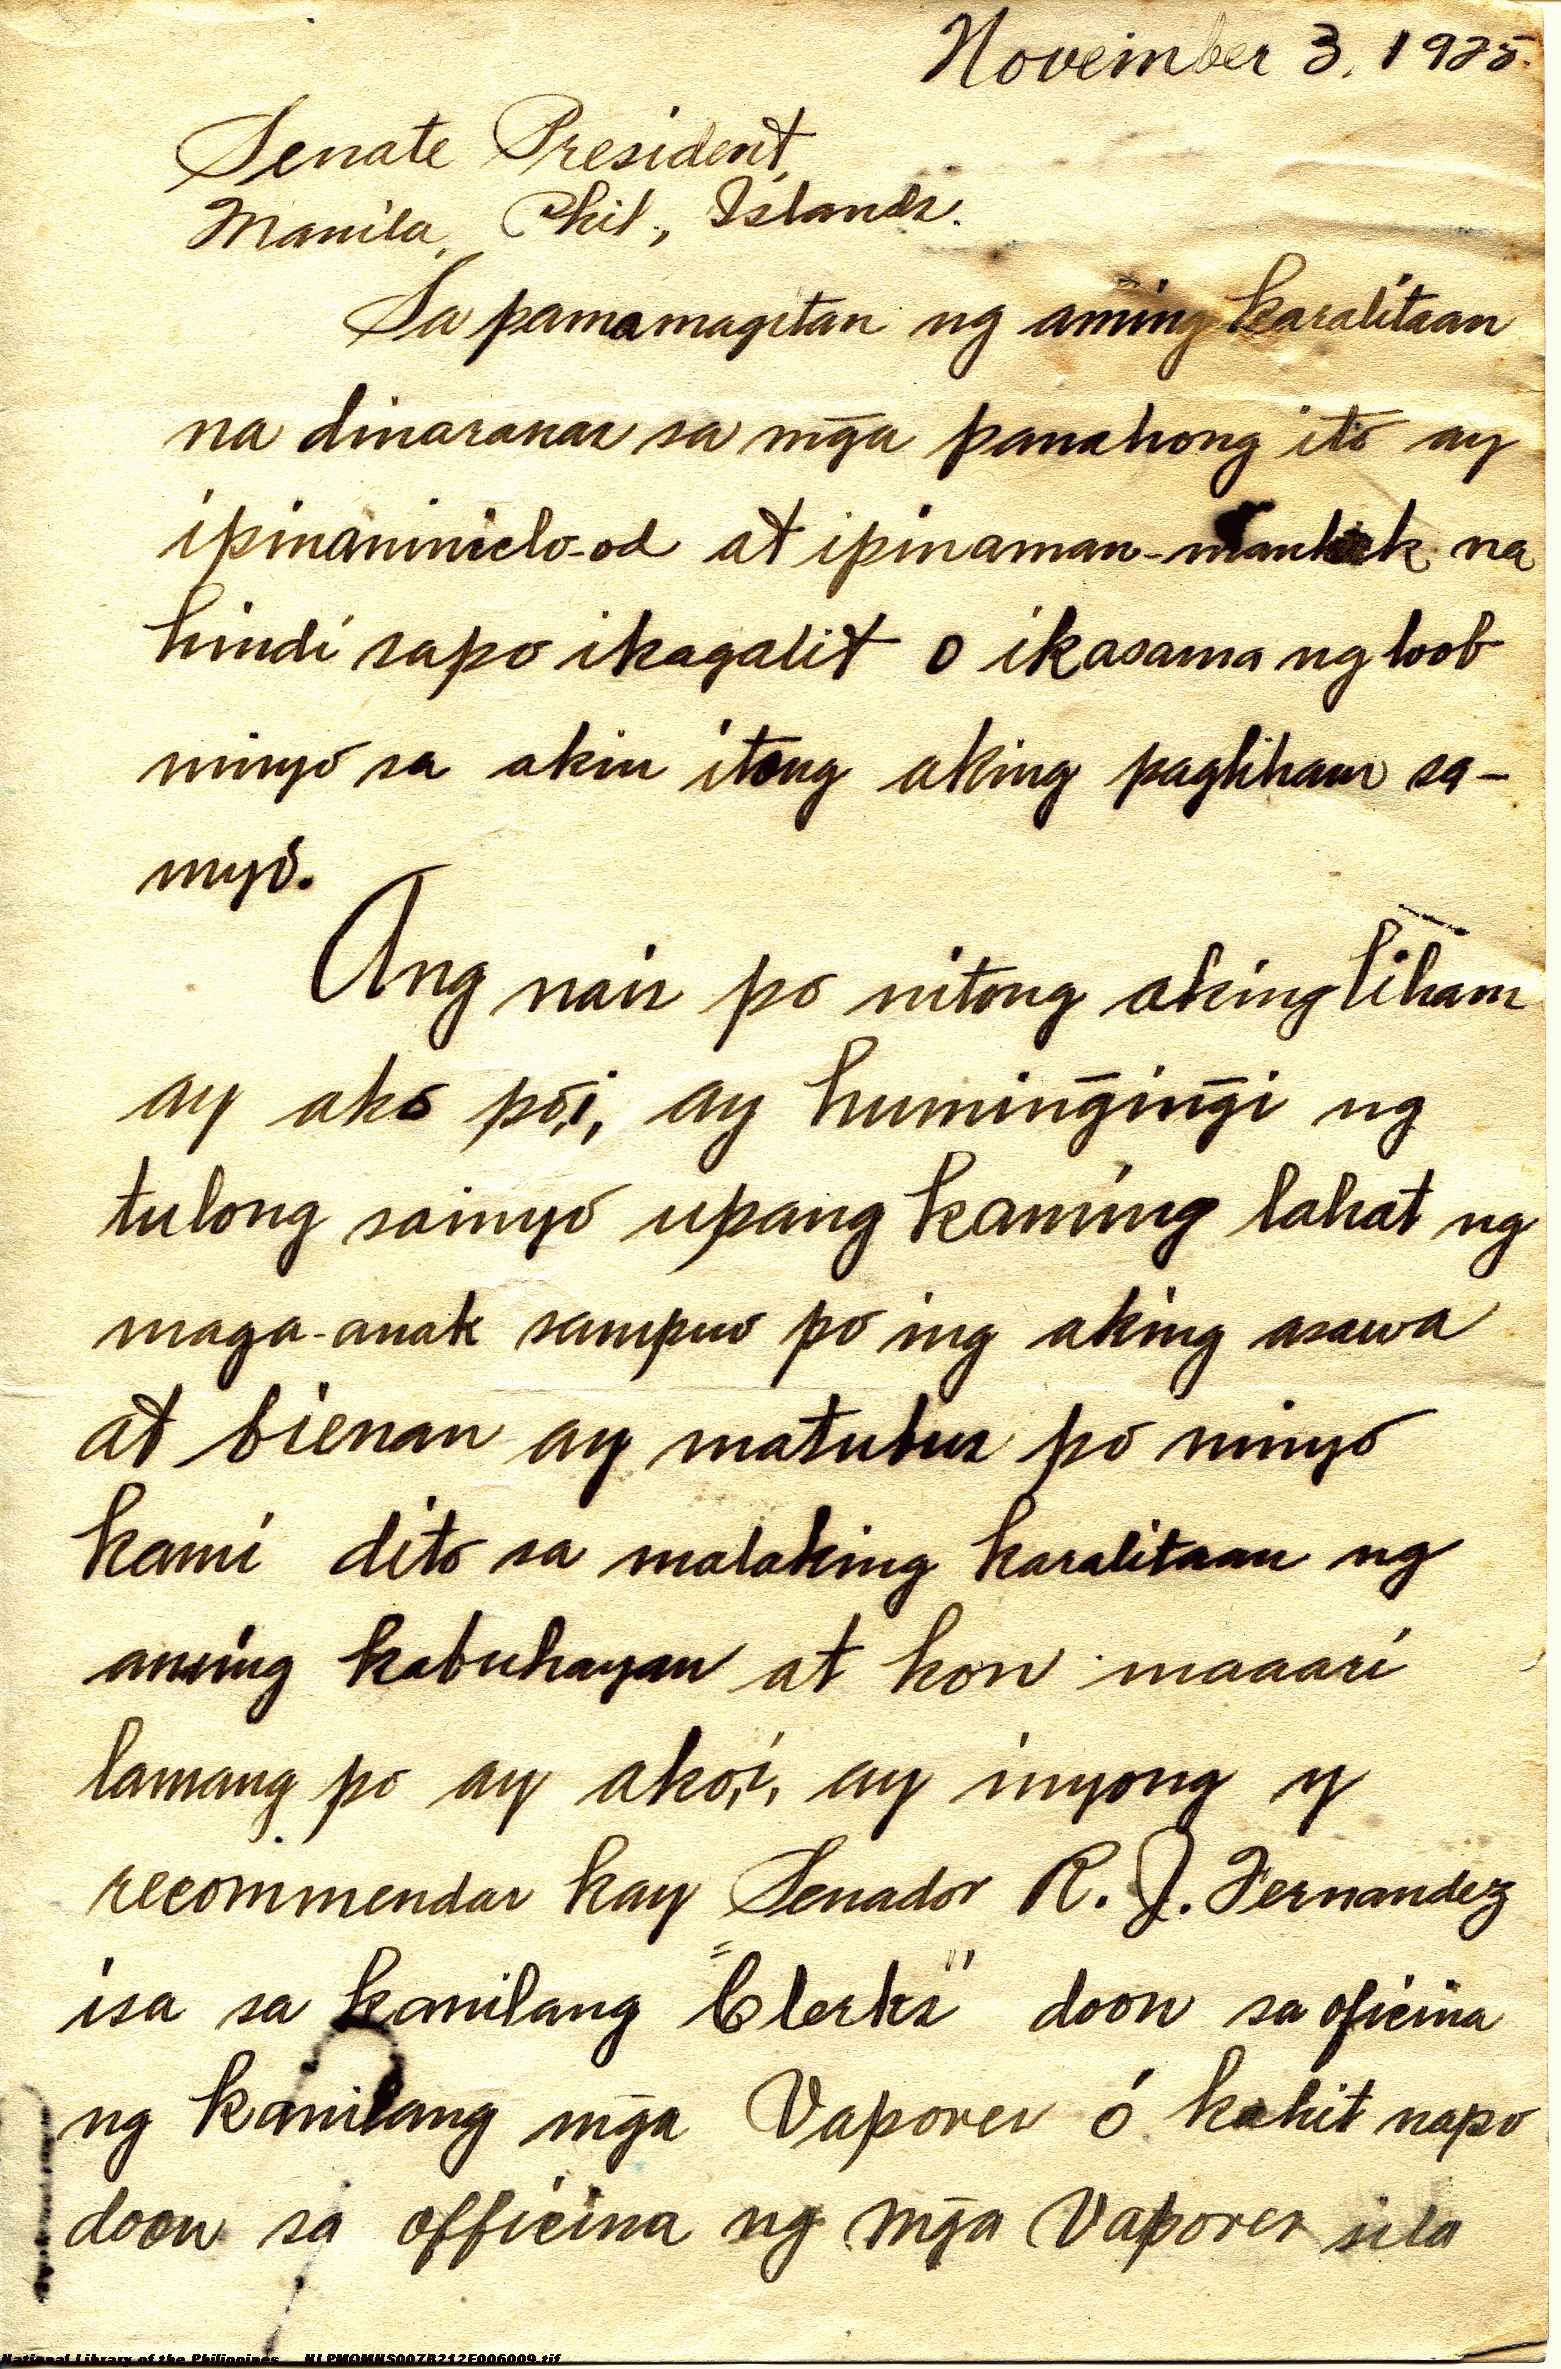 November 3, 1925.
Senate President,
Manila, Phil., Islands.
Sa pamamagitan ng aming karalitaan
na dinaranas sa mg̃a panahong ito ay
ipinaniniclo-od at ipinaman-manhik na
hindi sapo ikagalit o ikasama ng loob
ninyó sa akin itong aking pagliham sa-
inyó.
Ang nais po nitong aking liham
ay ako pó,i, ay huming̃ing̃i ng
tulong sainyó upang kaming lahat ng
maga-anak sampuo po ing aking asawa
at bienan ay matubus pó ninyó
kami dito sa malaking karalitaan ng
aming kabuhayan at kon maaari
lamang po ay ako,i, ay inyong y
recommendar kay Senador R. J. Fernandez
isa sa kanilang "Clerks" doon sa oficina
ng kanilang mg̃a Vapores ó kahit napo
doon sa officina ng mg̃a Vapores sila
National Library of the Philippines NLPMQMNS007B212F006009.tif